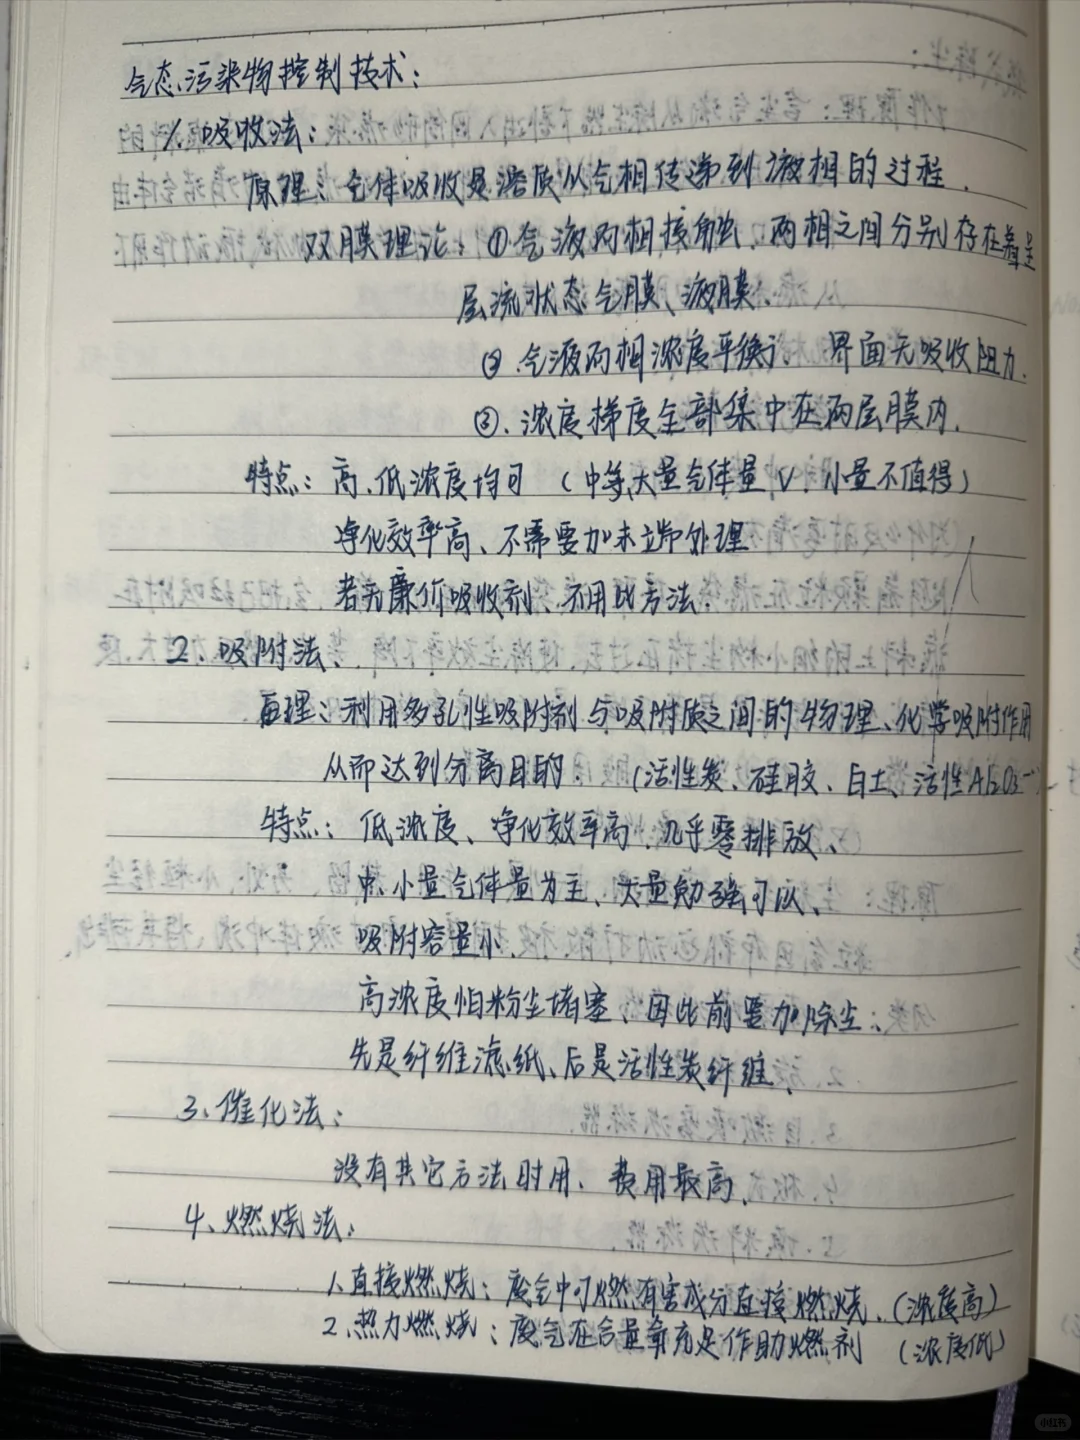 气态污染物控制技术：
1. 吸收法：
原理：气体吸收是溶质从气相传递到液相的过程.
双膜理论：①气液两相接触，两相之间分别存在着呈
层流状态气膜、液膜、
② 气液两相浓度平衡， 界面无吸收阻力.
③. 浓度梯度全部集中在两层膜内.
特点：高、低浓度均可 （中等、大量气体量 √. 小量不值得）
净化效率高、不需要加末端处理
若无廉价吸收剂、不用此方法.
2. 吸附法：
原理：利用多孔性吸附剂与吸附质之间的物理、化学吸附作用
从而达到分离目的. （活性炭、硅胶、白土、活性Al2O3…）
特点：低浓度、净化效率高，几乎零排放、
小量气体量为主、大量勉强可以、
吸附容量小、
高浓度怕粉尘堵塞、因此前要加除尘：
先是纤维滤纸、后是活性炭纤维、
3、催化法：
没有其它方法时用、费用最高、
4、燃烧法：
1、直接燃烧：废气中可燃有害成分直接燃烧、（浓度高）
2、热力燃烧：废气在含量氧充足作助燃剂 （浓度低）
小红书